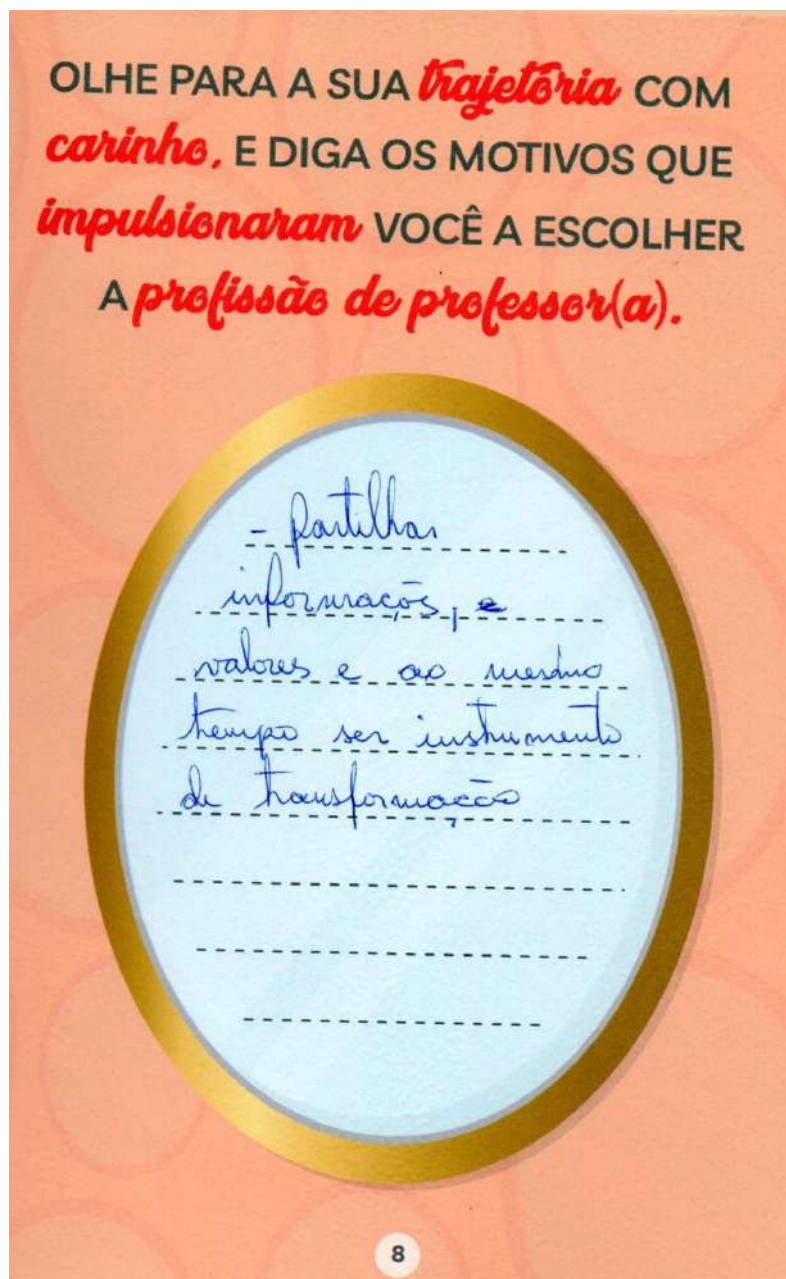 OLHE PARA A SUA trajetória COM
carinho, E DIGA OS MOTIVOS QUE
impulsionaram VOCÊ A ESCOLHER
A profissão de professor(a).
- Partilhar
informaçõs, e
valores e ao mesmo
tempo ser instrumento
de transformação
8